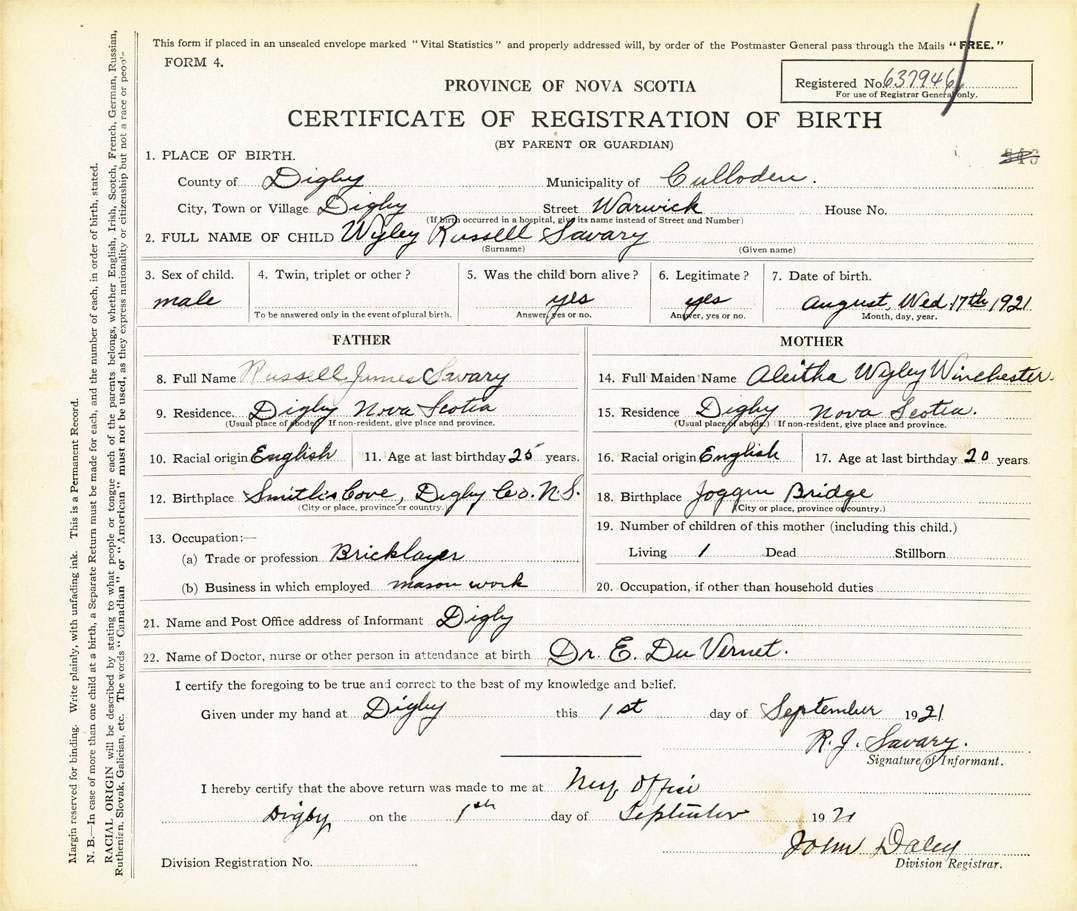 This form if placed in an unsealed envelope marked "Vital Statistics" and properly addressed will, by order of the Postmaster General pass through the Mails "FREE."
FORM 4.
PROVINCE OF NOVA SCOTIA
Registered No. 637946
For use of Registrar General only.
CERTIFICATE OF REGISTRATION OF BIRTH
(BY PARENT OR GUARDIAN)
1. PLACE OF BIRTH.
County of Digby Municipality of Culloden.
City, Town or Village Digby Street Warwick House No.
(If birth occurred in a hospital, give its name instead of Street and Number)
2. FULL NAME OF CHILD Wyley Russell Savary
(Surname) (Given name)
3. Sex of child. 4. Twin, triplet or other? 5. Was the child born alive? 6. Legitimate? 7. Date of birth.
male yes yes August, Wed. 17th 1921
To be answered only in the event of plural birth. Answer, yes or no. Answer, yes or no. Month, day, year.
FATHER
8. Full Name Russell James Savary
9. Residence. Digby Nova Scotia
(Usual place of abode.) If non-resident, give place and province.
10. Racial origin English 11. Age at last birthday 25 years.
12. Birthplace Smith's Cove, Digby Co. N.S.
(City or place, province or country.)
13. Occupation:—
(a) Trade or profession Bricklayer
(b) Business in which employed mason work
MOTHER
14. Full Maiden Name Aleitha Wyley Winchester.
15. Residence Digby Nova Scotia.
(Usual place of abode.) If non-resident, give place and province.
16. Racial origin English 17. Age at last birthday 20 years
18. Birthplace Joggin Bridge
(City or place, province or country.)
19. Number of children of this mother (including this child.)
Living 1 Dead Stillborn
20. Occupation, if other than household duties
21. Name and Post Office address of Informant Digby
22. Name of Doctor, nurse or other person in attendance at birth Dr. E. Du Vernet.
I certify the foregoing to be true and correct to the best of my knowledge and belief.
Given under my hand at Digby this 1st day of September 1921
R. J. Savary.
Signature of Informant.
I hereby certify that the above return was made to me at My Office
Digby on the 1st day of September 1921
John Daley
Division Registrar.
Division Registration No.
Margin reserved for binding. Write plainly, with unfading ink. This is a Permanent Record.
N. B.—In case of more than one child at a birth, a Separate Return must be made for each, and the number of each, in order of birth, stated.
RACIAL ORIGIN will be described by stating to what people or tongue each of the parents belongs, whether English, Irish, Scotch, French, German, Russian,
Ruthenian, Slovak, Galician, etc. The words "Canadian" or "American" must not be used, as they express nationality or citizenship but not a race or people